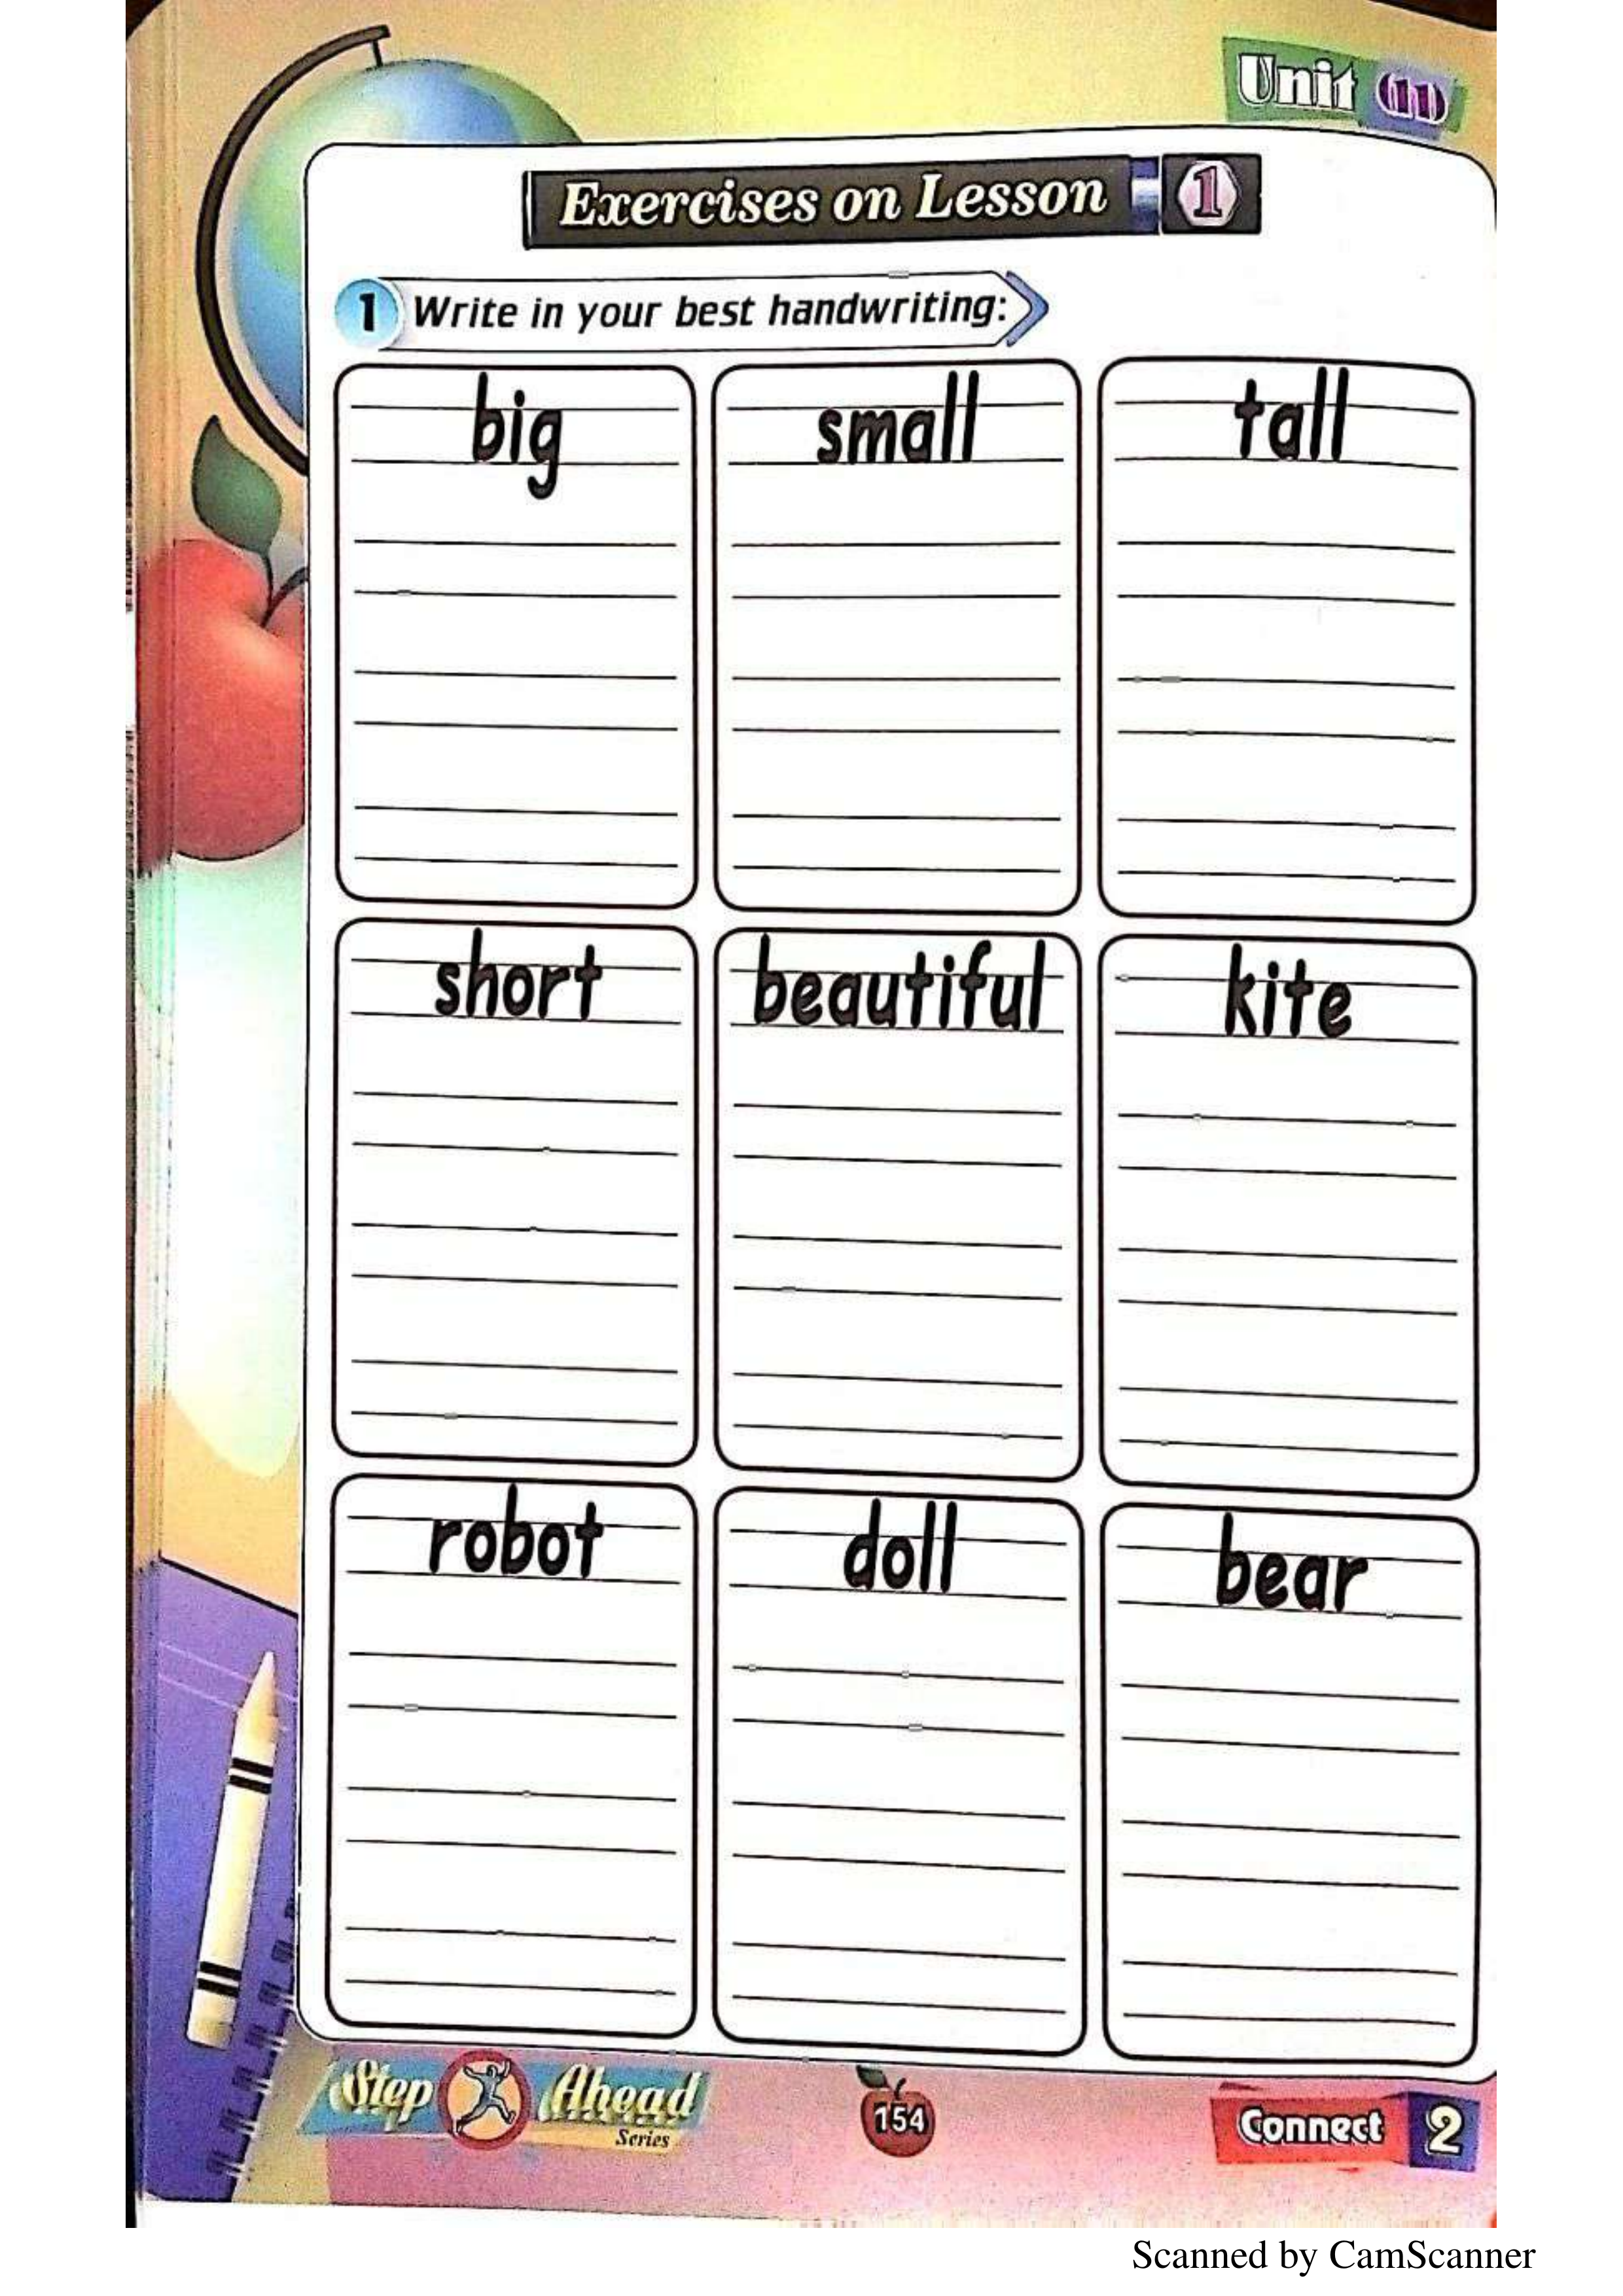 Unit (11)
Exercises on Lesson 1
1 Write in your best handwriting:
big small tall
short beautiful kite
robot doll bear
Step Ahead
Series
154
Connect 2
Scanned by CamScanner